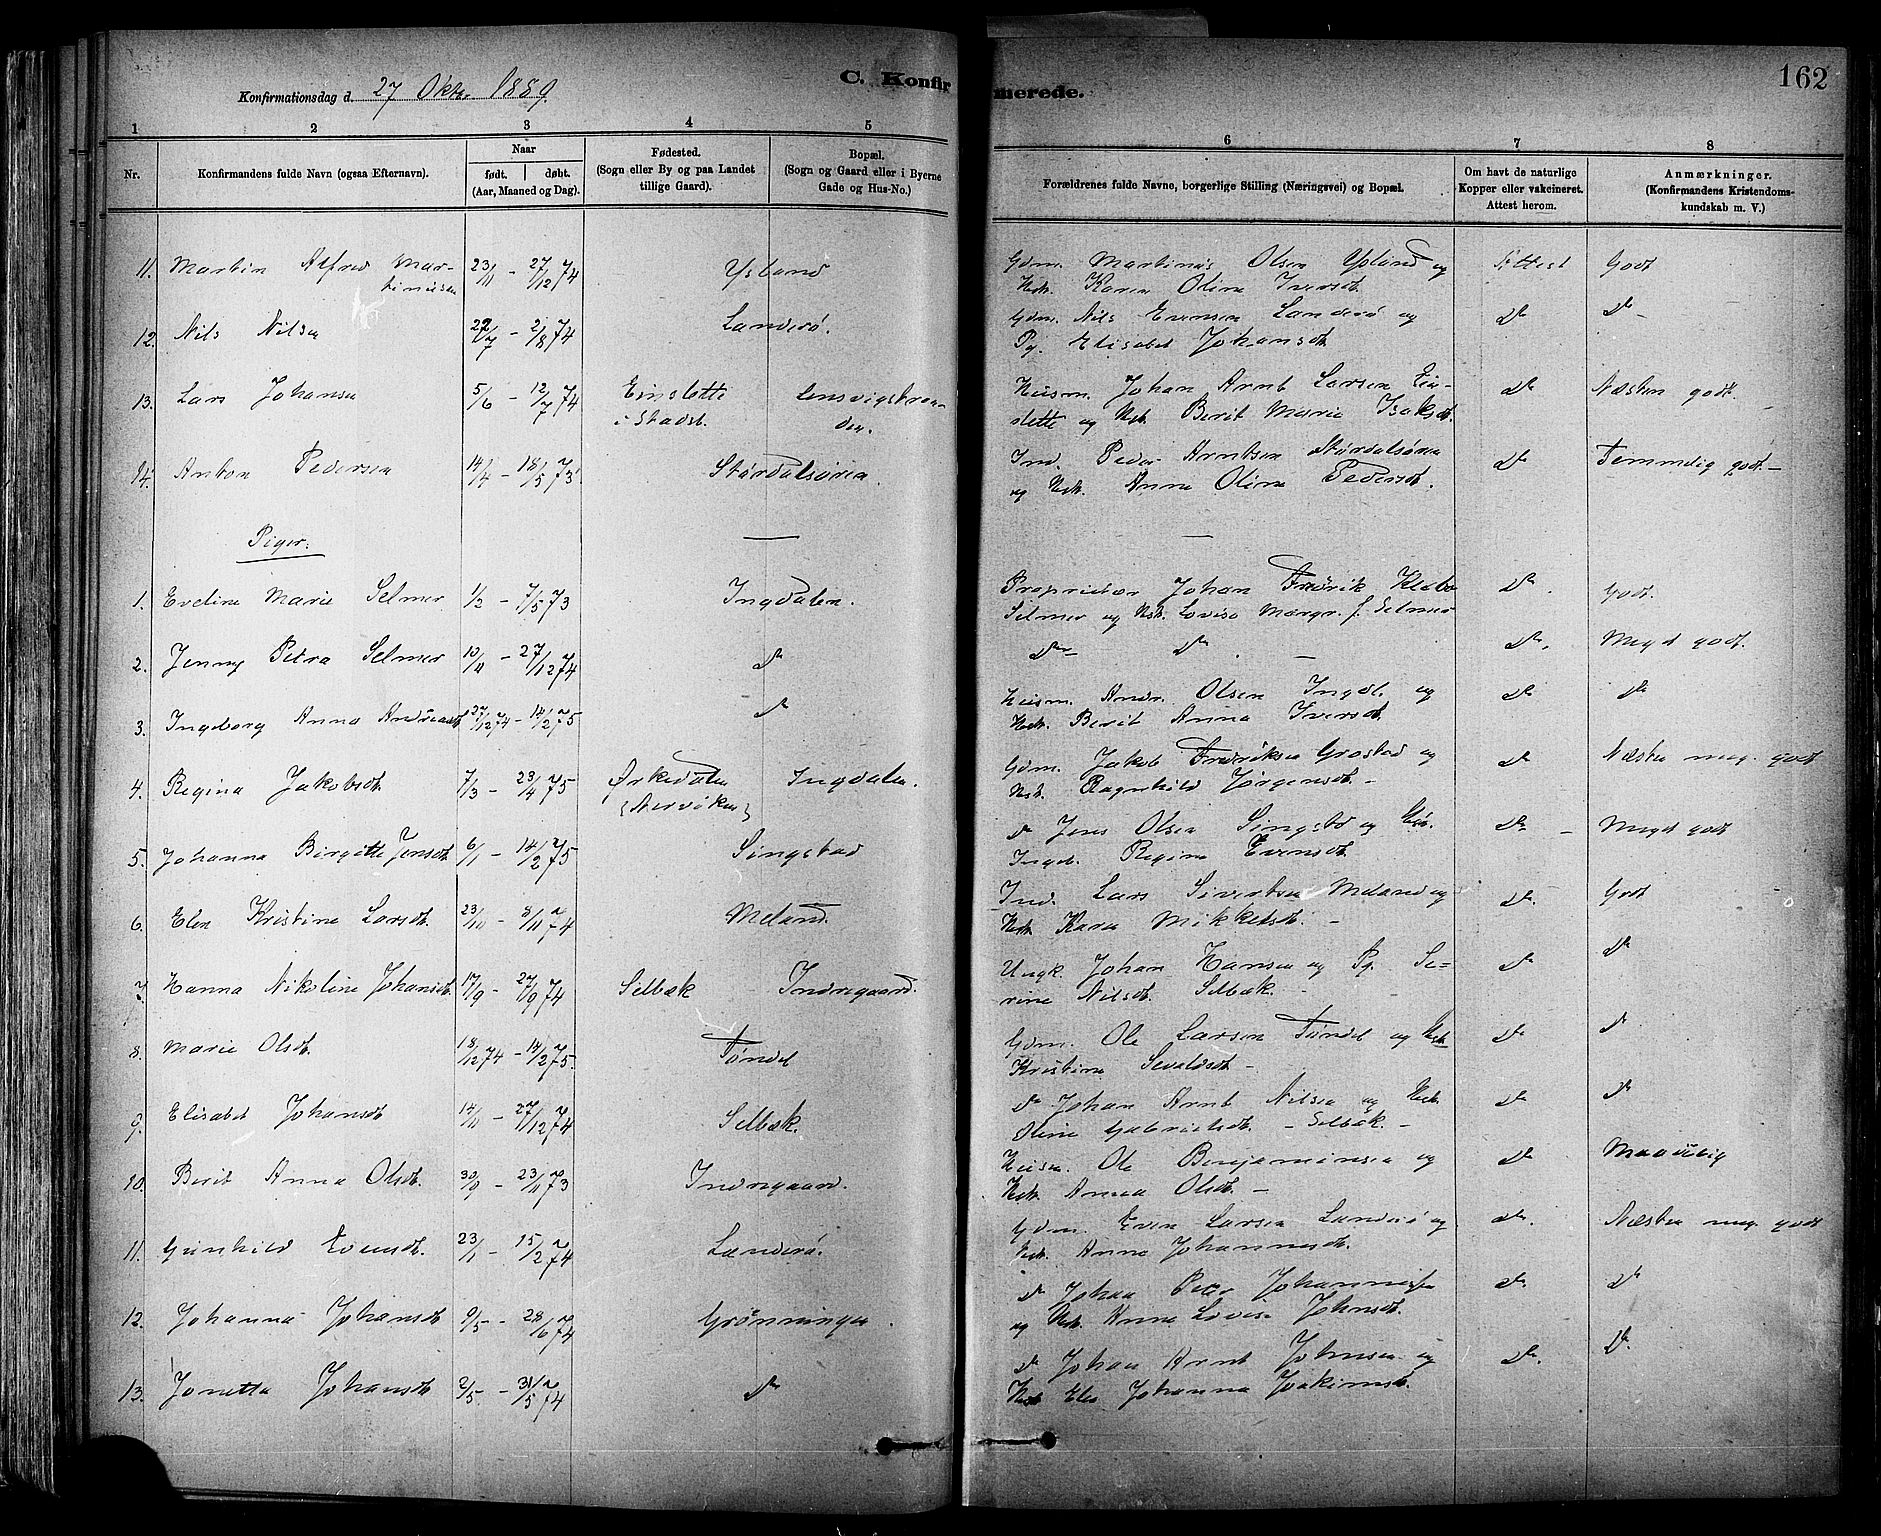 C. Konfirmerede.
162
Konfirmationsdag d. 27 Oktr. 1889.
1 2 3 4 5 6 7 8
Nr.
Konfirmandens fulde Navn (ogsaa Efternavn).
Naar født. døbt. (Aar, Maaned og Dag).
Fødested. (Sogn eller By og paa Landet tillige Gaard).
Bopæl. (Sogn og Gaard eller i Byerne Gade og Hus-No.)
Forældrenes fulde Navne, borgerlige Stilling (Næringsvei) og Bopæl.
Om havt de naturlige Kopper eller vakcineret. Attest herom.
Anmærkninger. (Konfirmandens Kristendomskundskab m. V.)
11. Martin Alfred Martinusen 23/11 - 27/12 74 Ysland Gdm. Martinus Olsen Ysland og Attest Godt
Hstr. Karen Olina Iversdt.
12. Nils Nilsen 22/7 - 2/8 74 Landerø. Gdm. Nils Evensen Landerø og do do
Pg. Elisabet Johansdt.
13. Lars Johansen 5/6 - 12/7 74 Einslette i Stadsb. Lensvigstranden. Husm. Johan Arnt Larsen Ein- do Næsten godt.
slette og Hstr. Berit Marie Isaksdt.
14. Anton Pedersen 14/4 - 18/5 73 Størdalsøren. Ind. Peder Arntsen Størdalsøren do Temmelig godt.
og Hstr. Anne Olina Pedersdt.
Piger.
1. Eveline Marie Selmer 1/2 - 7/5 73 Ingdalen. Proprietær Johan Fredrik Klæbo do Godt.
Selmer og Hstr. Lovise Margr. f. Selmer
2. Jenny Petra Selmer 10/11 - 27/12 74 do do do do. Meget godt.
3. Ingeborg Anna Andreasdt. 27/12 74 - 14/2 75 do Husm. Andr. Olsen Ingdl. og do do
Hstr. Berit Anna Iversdt.
4. Regina Jakobsdt. 7/3 - 23/4 75 Ørkedalen Ingdalen. Gdm. Jakob Fredriksen Grostad og do Næsten meg. godt
Hstr. Ragnhild Jørgensdt.
5. Johanna Birgitte Jensdt. 6/1 - 14/2 75 Singstad do Jens Olsen Singstd og Hstr. do Meget godt
Ingeb. Regine Evensdt.
6. Elen Kristine Larsdt. 23/10 - 8/11 74 Meland. Ind. Lars Sivertsen Meland og do. Godt
Hstr. Karen Mikkelsdt.
7. Hanna Nikoline Johansdt. 17/9 - 27/9 74 Selbæk Indregaard. Ungk. Johan Hansen og Pg. Se- do do
rine Nilsdt. Selbæk.
8. Marie Olsdt. 18/12 74 - 14/2 75. Tøndel Gdm. Ole Larsen Tøndel og Hstr. do do
Kristine Sevaldsdt.
9. Elisabet Johansdt. 14/11 - 27/12 74 Selbæk. do Johan Arnt Nilsen og Hstr. do do
Oline Gabrielsdt. - Selbæk. -
10. Berit Anna Olsdt. 30/9 - 23/11 73 Indregaard. Husm. Ole Benjaminsen og do Maadelig
Hstr. Anna Olsdt.
11. Gunhild Evensdt. 23/1 - 15/2 74 Landerø. Gdm. Even Larsen Landerø og do. Næsten meg. godt
Hstr. Anne Johannesdt.
12. Johanna Johansdt. 9/5 - 28/6 74 Grønningen. do Johan Peter Johannesen do do
og Hstr. Anne Lovise Johnsdt.
13. Jonetta Johansdt. 2/5 - 31/5 74 do do Johan Arnt Johnsen og do. do.
Hstr. Elen Johanna Joakimsdt.